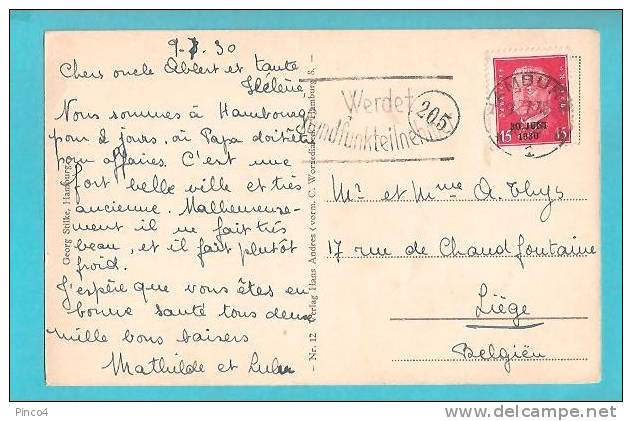 9-7.30
Chers oncle Albert et tante
Hélène
Nous sommes à Hambourg
pour 2 jours, où Papa doit être
pour affaires. C'est une
fort belle ville et très
ancienne. Malheureuse-
ment il ne fait très
beau, et il fait plutôt
froid.
J'espère que vous êtes en
bonne santé tous deux
mille bons baisers
Mathilde et
Georg Stilke, Hamburg
Nr. 12 Verlag Hans Andres (vorm. C. Worzedialeck) Hamburg 8.
Werdet
Rundfunkteilnehmer
205
HAMBURG
30. JUNI
1930
15 15
Mr et Mme A. Thys
17 rue de Chaudfontaine
Liège
Belgiën
Pinco4
www.delcampe.net